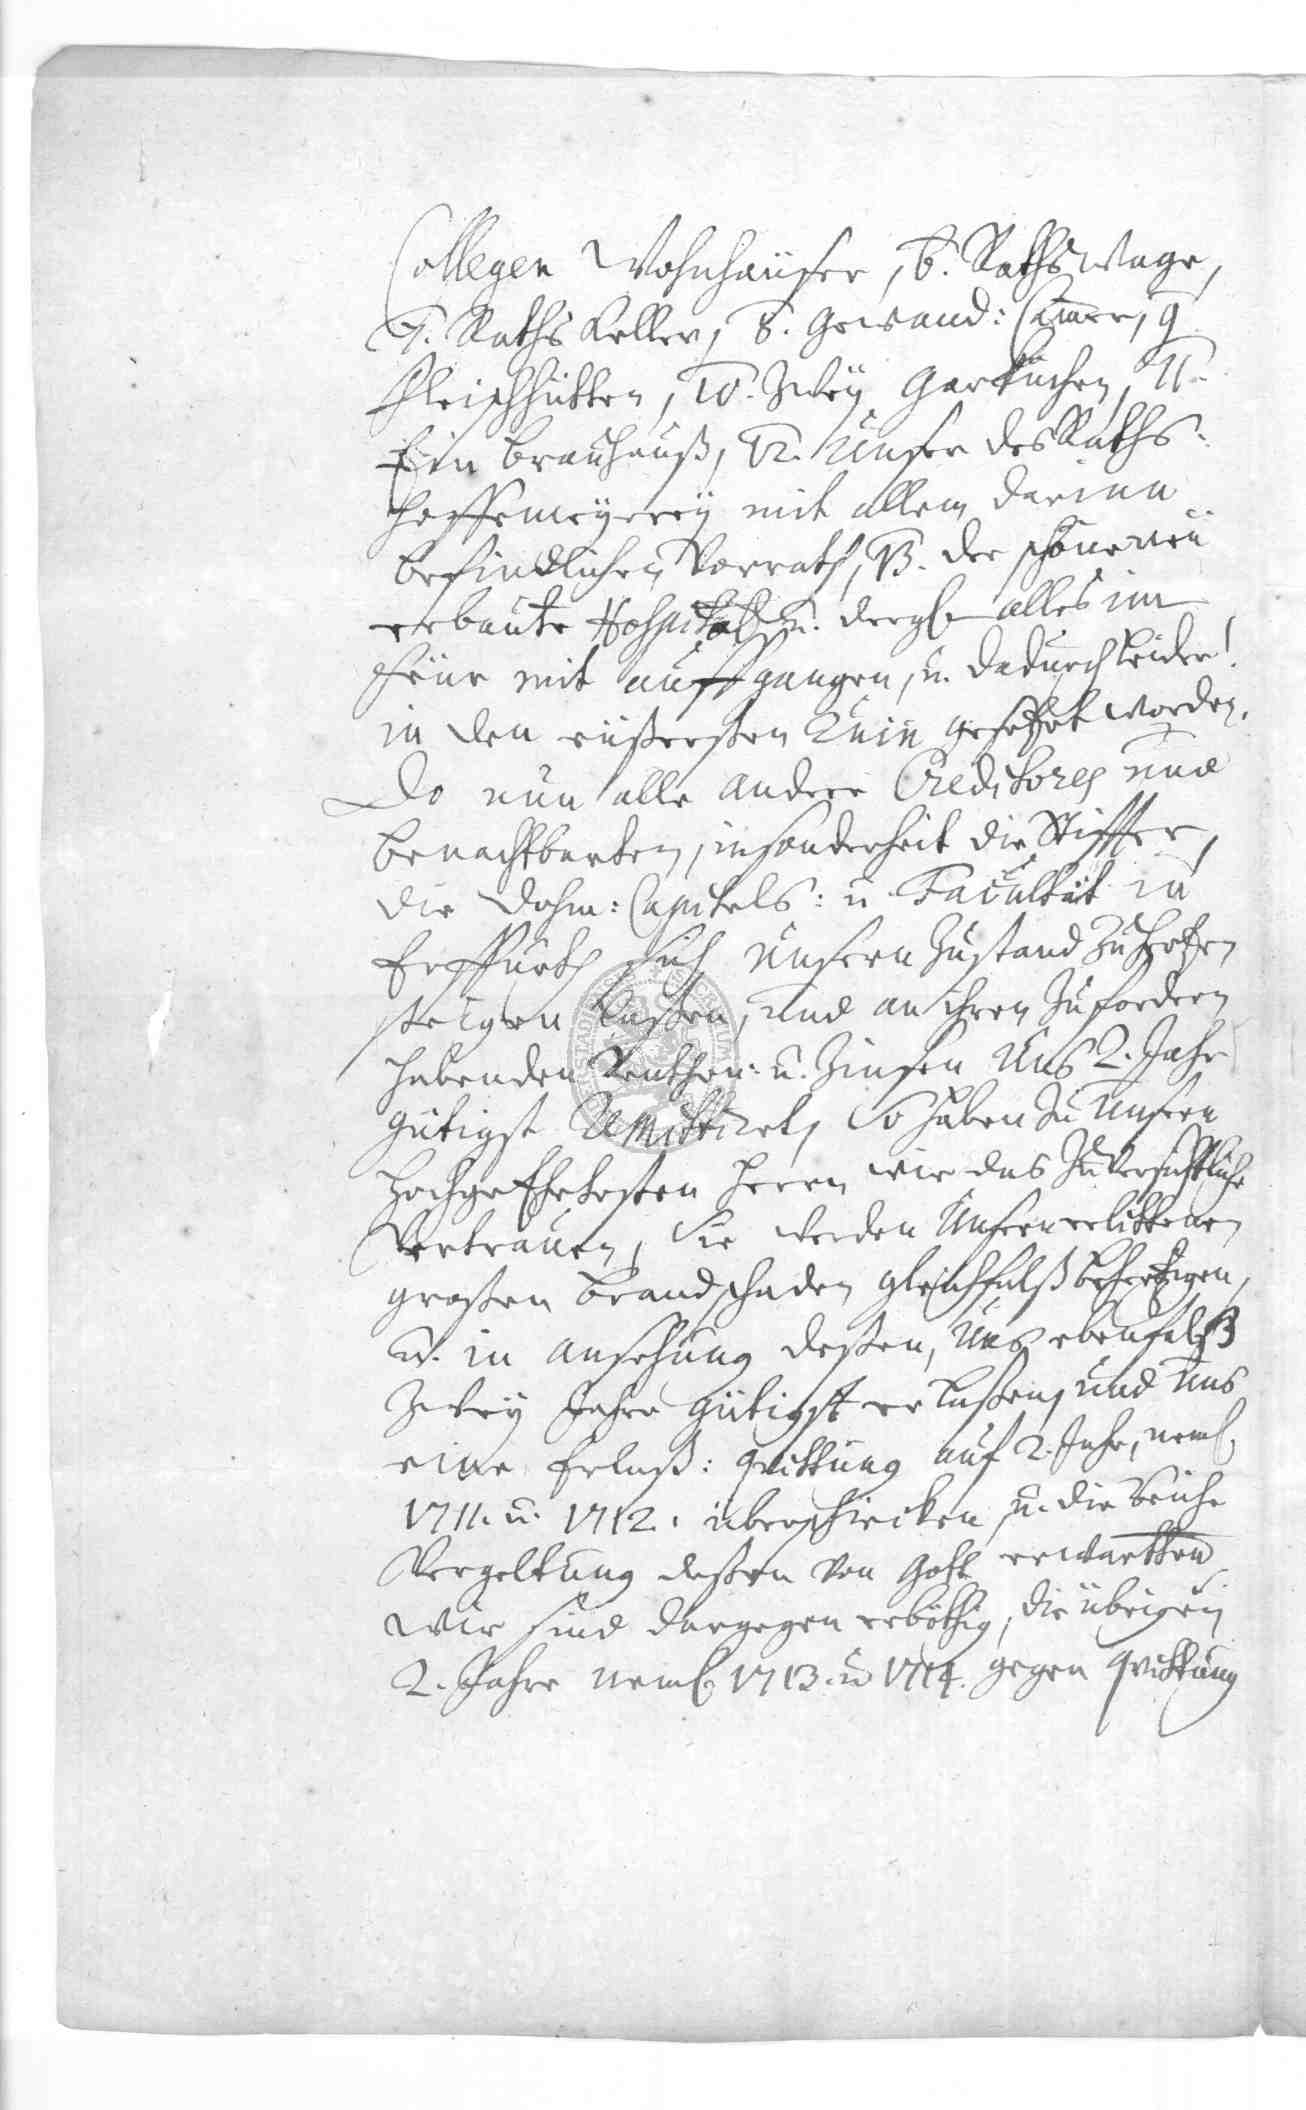 Collegen Wohnhäuser, 6. Rathswage,
7. Raths Keller, 8. Gewand: Camer, 9.
Fleischhütten, 10. Zwey Garküchen, 11.
Ein Brauhauß, 12. Unser des Raths
Hoffemeyerey mit allem darinn
befindlichen Vorrath, 13. der schöne neü
erbaute Hospital u. dergl. alles im
Feüer mit auffgangen, u. dadurch leider!
in den eüßersten Ruin gesetzet worden.
Da nun alle andere Creditores und
benachtbarten, insonderheit die Stiffter,
die Dohm: Capitels: u. Facultät in
Erffurth sich unsern Zustand zu Hertzen
steigen laßen, und an ihren zufordern
habenden Renthen: u. Zinsen Uns 2. Jahr
gütigst remittiret, So haben zu Unsern
Hochgeehrtesten Herrn wir das zuversichtliche
Vertrauen, Sie werden Unsern erlittenen
großen Brandschaden gleichfalß behertzigen,
u. in ansehung deßen, Uns ebenfalß
Zwey Jahre gütigst erlaßen, und Uns
eine Erlaß: Quittung auf 2. Jahr, neml.
1711. u. 1712. überschicken, u. die reiche
Vergeltung deßen von Gott erwartten.
Wir sind dargegen erböthig, die übrigen
2. Jahre neml. 1713. u. 1714. gegen Quittung